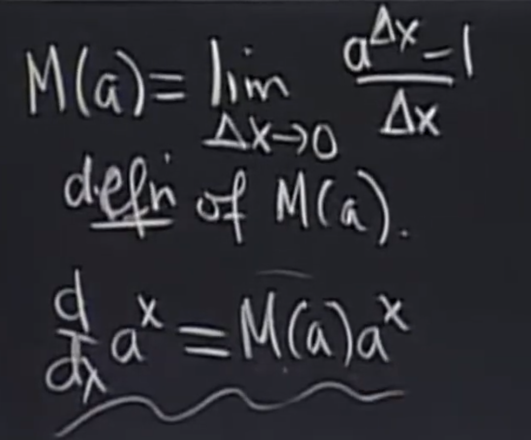 M(a) = lim Δx→0 (a^Δx - 1)/Δx
defn of M(a).
d/dx a^x = M(a)a^x